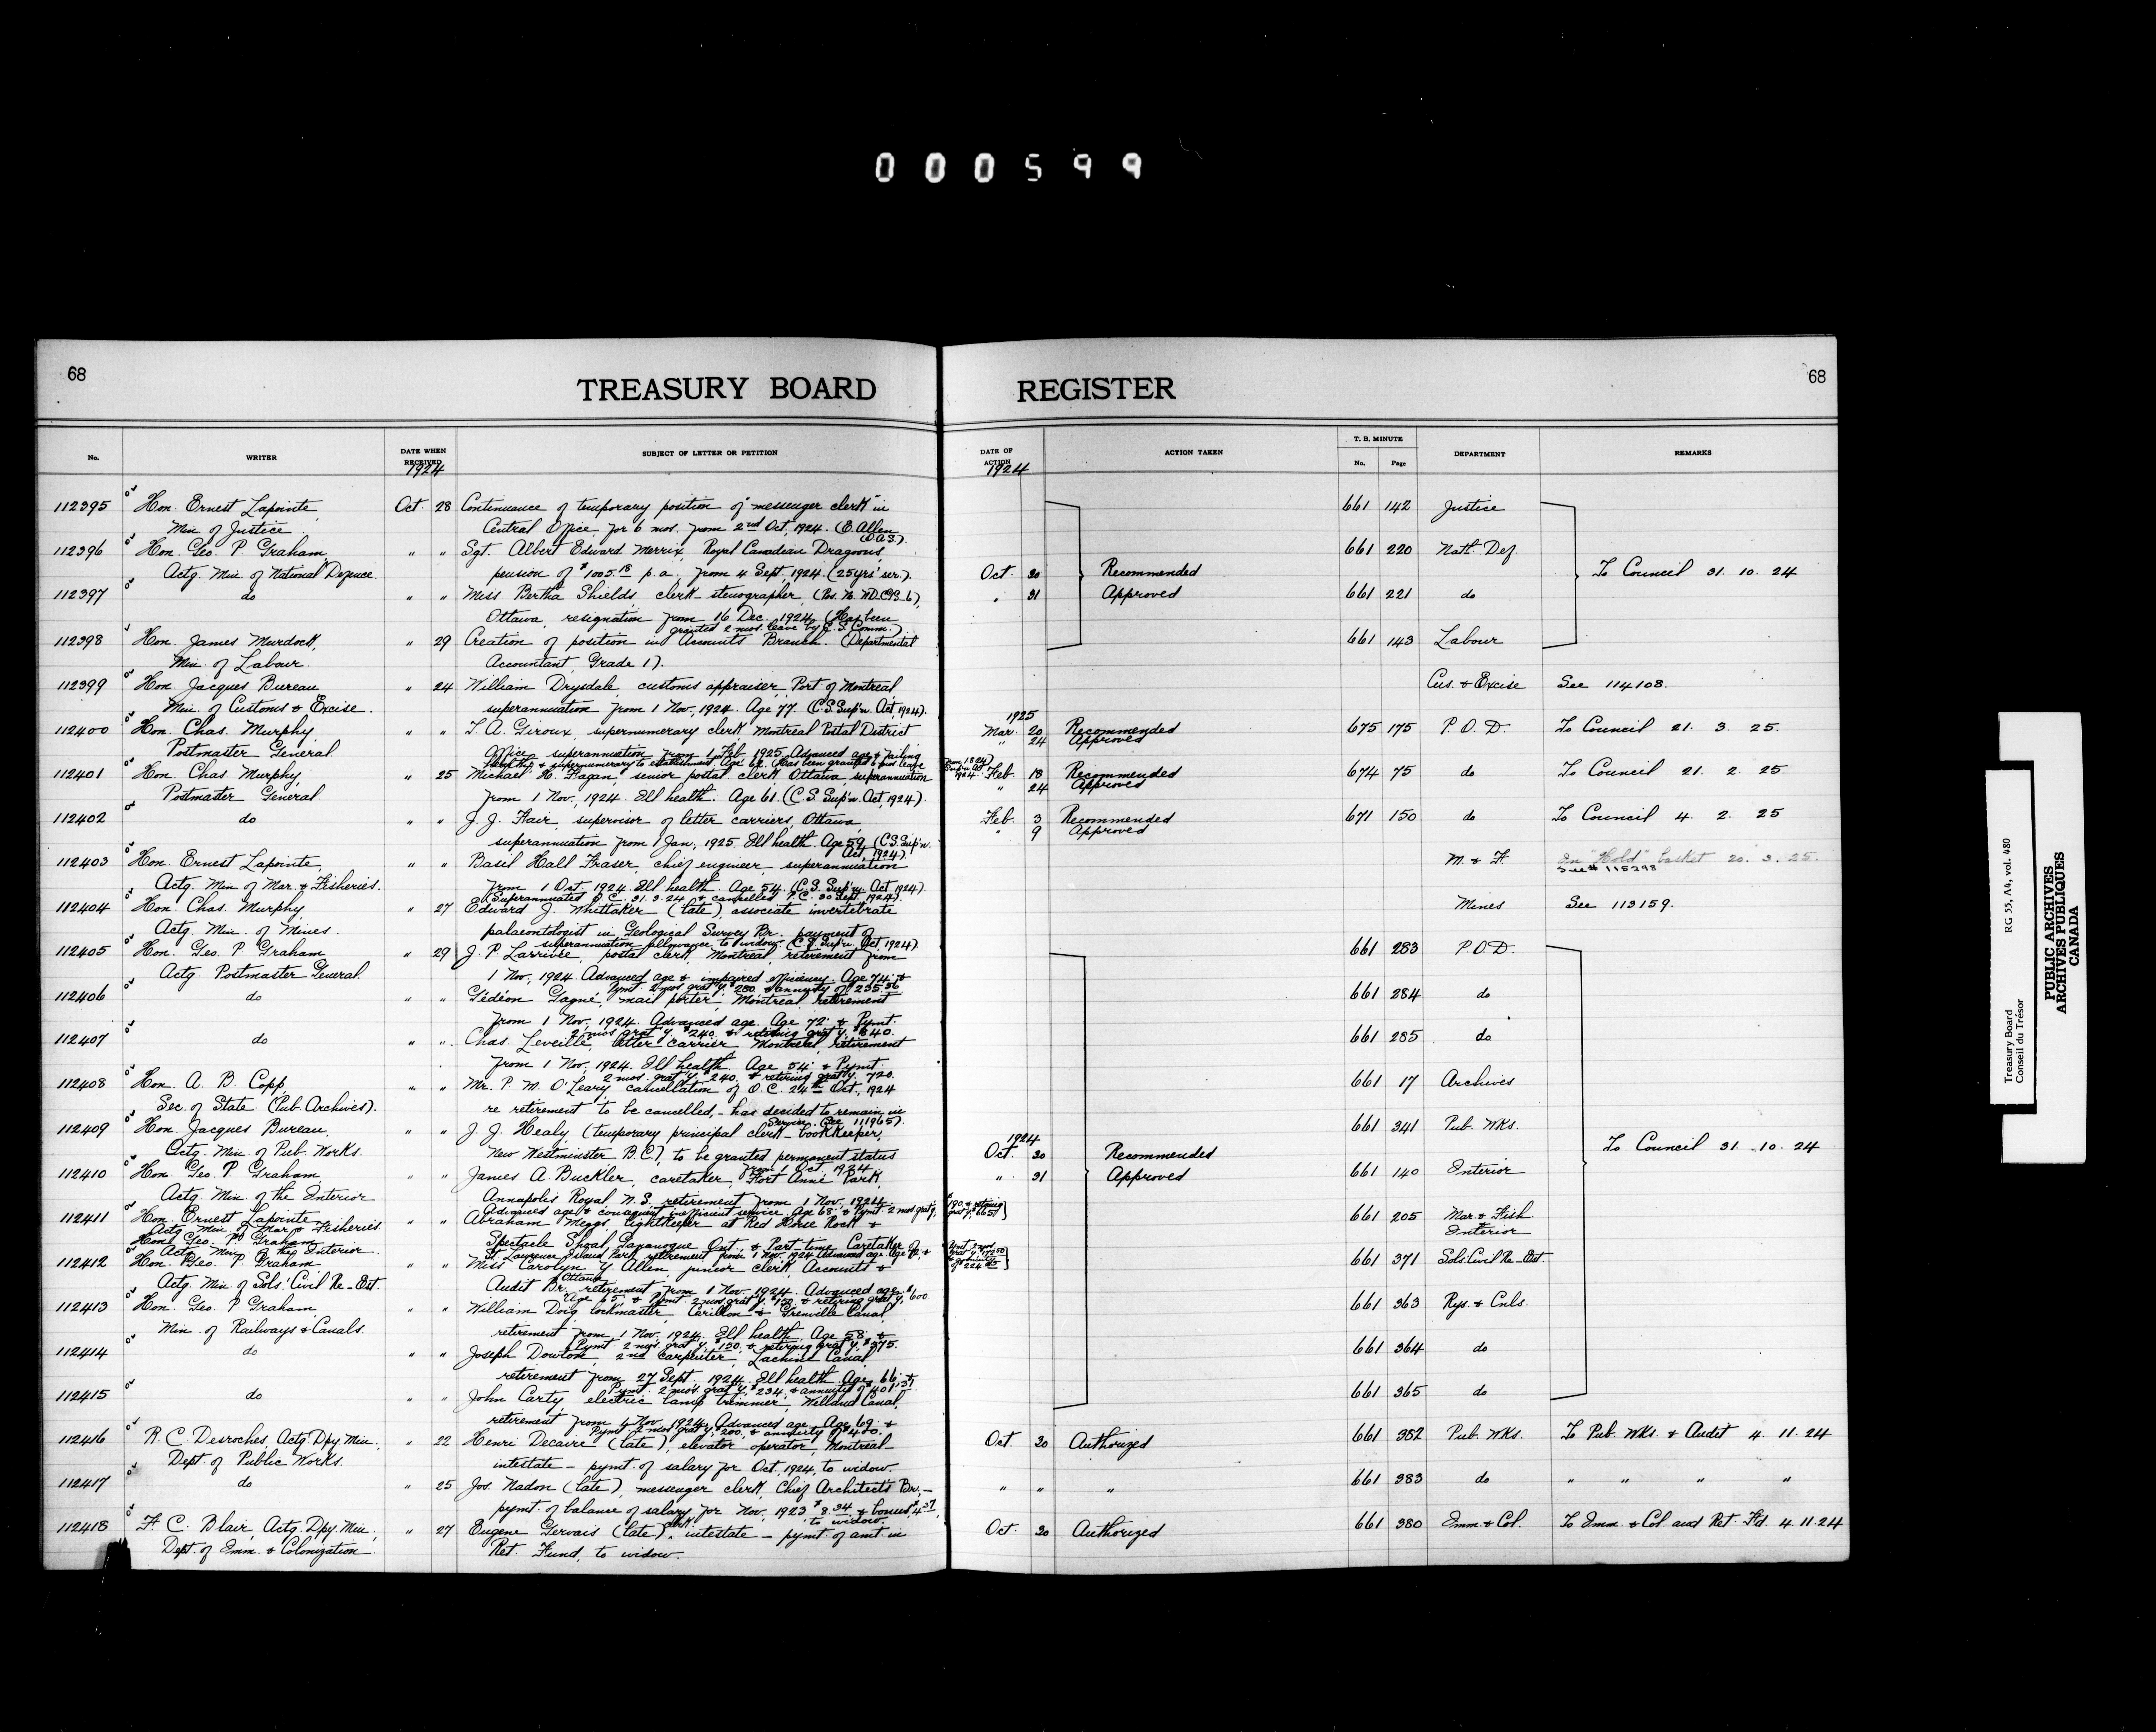 000599
68
TREASURY BOARD REGISTER
68
No. WRITER DATE WHEN RECEIVED SUBJECT OF LETTER OR PETITION DATE OF ACTION ACTION TAKEN T. B. MINUTE No. Page DEPARTMENT REMARKS
1924 1924
112395 Hon. Ernest Lapointe, Oct. 28 Continuance of temporary position of "messenger clerk" in 661 142 Justice
Min. of Justice Central Office, for 6 mos. from 2nd Oct., 1924. (E. Allen
O.A.S.).
112396 Hon. Geo. P. Graham, " " Sgt. Albert Edward Merrix, Royal Canadian Dragoons, 661 220 Natl. Def.
Actg. Min. of National Defence. pension of $1005.18 p.a. from 4 Sept. 1924. (25 yrs' ser.). Oct. 30 Recommended To Council 31. 10. 24
112397 do " " Miss Bertha Shields clerk stenographer, " 31 Approved 661 221 do
Ottawa, resignation from 16 Dec. 1924. (Has been
granted 2 mos. leave by C. S. Comm.)
112398 Hon. James Murdock, " 29 Creation of position in Accounts Branch. (Departmental 661 143 Labour
Min. of Labour. Accountant, Grade 1).
112399 Hon. Jacques Bureau " 24 William Drysdale, customs appraiser, Port of Montreal, Cus. & Excise See 114108.
Min. of Customs & Excise. superannuation from 1 Nov., 1924. Age 77. (C.S. Sup'n. Oct., 1924).
1925
112400 Hon. Chas. Murphy, " " T. A. Giroux, supernumerary clerk Montreal Postal District Mar. 20 Recommended 675 175 P. O. D. To Council 21. 3. 25.
" 24 Approved
Postmaster General Office, superannuation from 1 Feb. 1925. Advanced age & failing
health & supernumerary to establishment. Age 62. (Has been granted 6 mos. leave
112401 Hon. Chas. Murphy, " 25 Michael H. Fagan, senior postal clerk, Ottawa, superannuation Feb. 18 Recommended 674 75 do To Council 21. 2. 25
" 24 Approved
Postmaster General from 1 Nov., 1924. Ill health. Age 61. (C.S. Sup'n. Oct., 1924).
112402 do " " J. J. Fair, supervisor of letter carriers, Ottawa, Feb. 3 Recommended 671 150 do To Council 4. 2. 25
" 9 Approved
superannuation from 1 Jan., 1925. Ill health. Age 59. (C.S. Sup'n.
Oct., 1924).
112403 Hon. Ernest Lapointe, " " Basil Hall Fraser, chief engineer, superannuation M. & F. In "Hold" basket 20. 3. 25.
See # 115298
Actg. Min. of Mar. & Fisheries. from 1 Oct., 1924. Ill health. Age 54. (C.S. Sup'n. Oct., 1924).
(Superannuated P.C. 31.3.24 & cancelled P.C. 30 Sept. 1924).
112404 Hon. Chas. Murphy, " 27 Edward J. Whittaker (late), associate invertebrate Mines See 113159.
Actg. Min. of Mines. palaeontologist in Geological Survey Br., payment of
superannuation allowance to widow. (C.S. Sup'n. Oct. 1924)
112405 Hon. Geo. P. Graham " 29 J. P. Larrivée, postal clerk, Montreal, retirement from 661 283 P.O.D.
Actg. Postmaster General. 1 Nov., 1924. Advanced age & impaired efficiency. Age 74: &
Pymt. 2 mos. grat'y. $280. & annuity of 235.56
112406 do " " Gédéon Gagné, mail porter, Montreal retirement 661 284 do
from 1 Nov., 1924. Advanced age. Age 72: & Pymt.
2 mos. grat'y. $240. & retiring grat'y. $840.
112407 do " " Chas. Leveillé, letter carrier Montreal, retirement 661 285 do
from 1 Nov., 1924. Ill health. Age 54: & Pymt.
2 mos. grat'y. $240. & retiring grat'y. 720.
112408 Hon. A. B. Copp, " " Mr. P. M. O'Leary cancellation of O.C. 24th Oct., 1924 661 17 Archives
Sec. of State (Pub. Archives). re retirement to be cancelled, - has decided to remain in
service. (See 111965).
112409 Hon. Jacques Bureau, " " J. J. Healy, (temporary principal clerk - bookkeeper, 661 341 Pub. Wks.
1924
Actg. Min. of Pub. Works. New Westminster B.C.) to be granted permanent status Oct. 30 Recommended To Council 31. 10. 24
from 1 Oct. 1924.
112410 Hon. Geo. P. Graham, " " James A. Buckler, caretaker, Fort Anne Park, " 31 Approved 661 140 Interior
Actg. Min. of the Interior Annapolis Royal N. S. retirement from 1 Nov., 1924.
Advanced age & consequent inefficient service. Age 68: & Pymt. 2 mos grat'y.
112411 Hon. Ernest Lapointe " " Abraham Meggs, lightkeeper at Red Horse Rock & 661 205 Mar. & Fish.
Actg. Min. of Mar. & Fisheries. Interior
Hon. Geo. P. Graham Spectacle Shoal Gananoque Ont. & Part-time Caretaker of
Actg. Min. of the Interior. St. Lawrence Island Park, retirement from 1 Nov. 1924. Advanced age.
112412 Hon. Geo. P. Graham " " Miss Carolyn Y. Allen junior clerk, Accounts & 661 371 Sols' Civil Re-Est.
Actg. Min. of Sols' Civil Re-Est. Audit Br., Ottawa, retirement from 1 Nov., 1924. Advanced age.
Age 65: & Pymt. 2 mos grat'y. $150. & retiring grat'y. $600.
112413 Hon. Geo. P. Graham " " William Doig, lockmaster, Carillon & Grenville Canal, 661 363 Rys. & Cnls.
Min. of Railways & Canals. retirement from 1 Nov., 1924. Ill health. Age 58: &
Pymt. 2 mos. grat'y. $150. & retiring grat'y. $375.
112414 do " " Joseph Dowton, 2nd carpenter, Lachine Canal, 661 364 do
retirement from 27 Sept., 1924. Ill health. Age 66:
Pymt. 2 mos. grat'y. $234. & annuity of $401.
112415 do " " John Carty, electric lamp trimmer, Welland Canal, 661 365 do
retirement from 4 Nov., 1924. Advanced age. Age 69: &
Pymt. 2 mos grat'y. $200. & annuity of $480.
112416 R. C. Desroches, Actg. Dpy. Min., " 22 Henri Decaire (late), elevator operator, Montreal Oct. 30 Authorized 661 382 Pub. Wks. To Pub. Wks. & Audit 4. 11. 24
Dept. of Public Works. intestate - pymt. of salary for Oct., 1924, to widow.
112417 do " 25 Jos. Nadon (late), messenger clerk, Chief Architect's Br., - " " " 661 383 do " " " "
pymt. of balance of salary for Nov., 1923 $8.34 & bonus $4.37,
to widow.
112418 F. C. Blair, Actg. Dpy. Min., " 27 Eugene Gervais (late), clerk, intestate - pymt. of amt. in Oct. 30 Authorized 661 380 Imm. & Col. To Imm. & Col. and Ret. Fd. 4. 11. 24
Dept. of Imm. & Colonization Ret. Fund, to widow.
Treasury Board RG 55, A4, vol. 480
Conseil du Trésor
PUBLIC ARCHIVES
ARCHIVES PUBLIQUES
CANADA